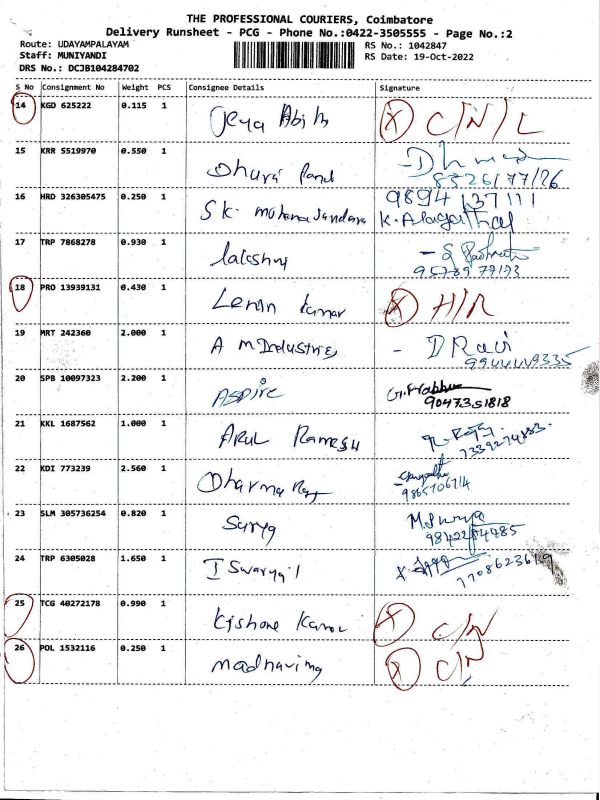 THE PROFESSIONAL COURIERS, Coimbatore
Delivery Runsheet - PCG - Phone No.:0422-3505555 - Page No.:2
Route: UDAYAMPALAYAM
RS No.: 1042847
Staff: MUNIYANDI
RS Date: 19-Oct-2022
DRS No.: DCJB104284702
S No Consignment No Weight PCS Consignee Details Signature
14 KGD 625222 0.115 1 Jeya X C/N/L
15 KRR 5519970 0.550 1
16 HRD 326305475 0.250 1 SK
K. Alagathal
17 TRP 7868278 0.930 1 lakshmi
18 PRO 13939131 0.430 1 Lenin Kumar X H/R
19 MRT 242360 2.000 1 A M Industries - D Ravi
20 SPB 10097323 2.200 1 ASPIRE G. Prabhu
9047351818
21 KKL 1687562 1.000 1 ARUL RAMESH
7339274833.
22 KDI 773239 2.560 1 Dharma Raj
9865706714
23 SLM 305736254 0.820 1 Surya M. Surya
9842284485
24 TRP 6305028 1.650 1 I
7708623619
25 TCG 40272178 0.990 1 Kishore X C/N
26 POL 1532116 0.250 1 X C/N